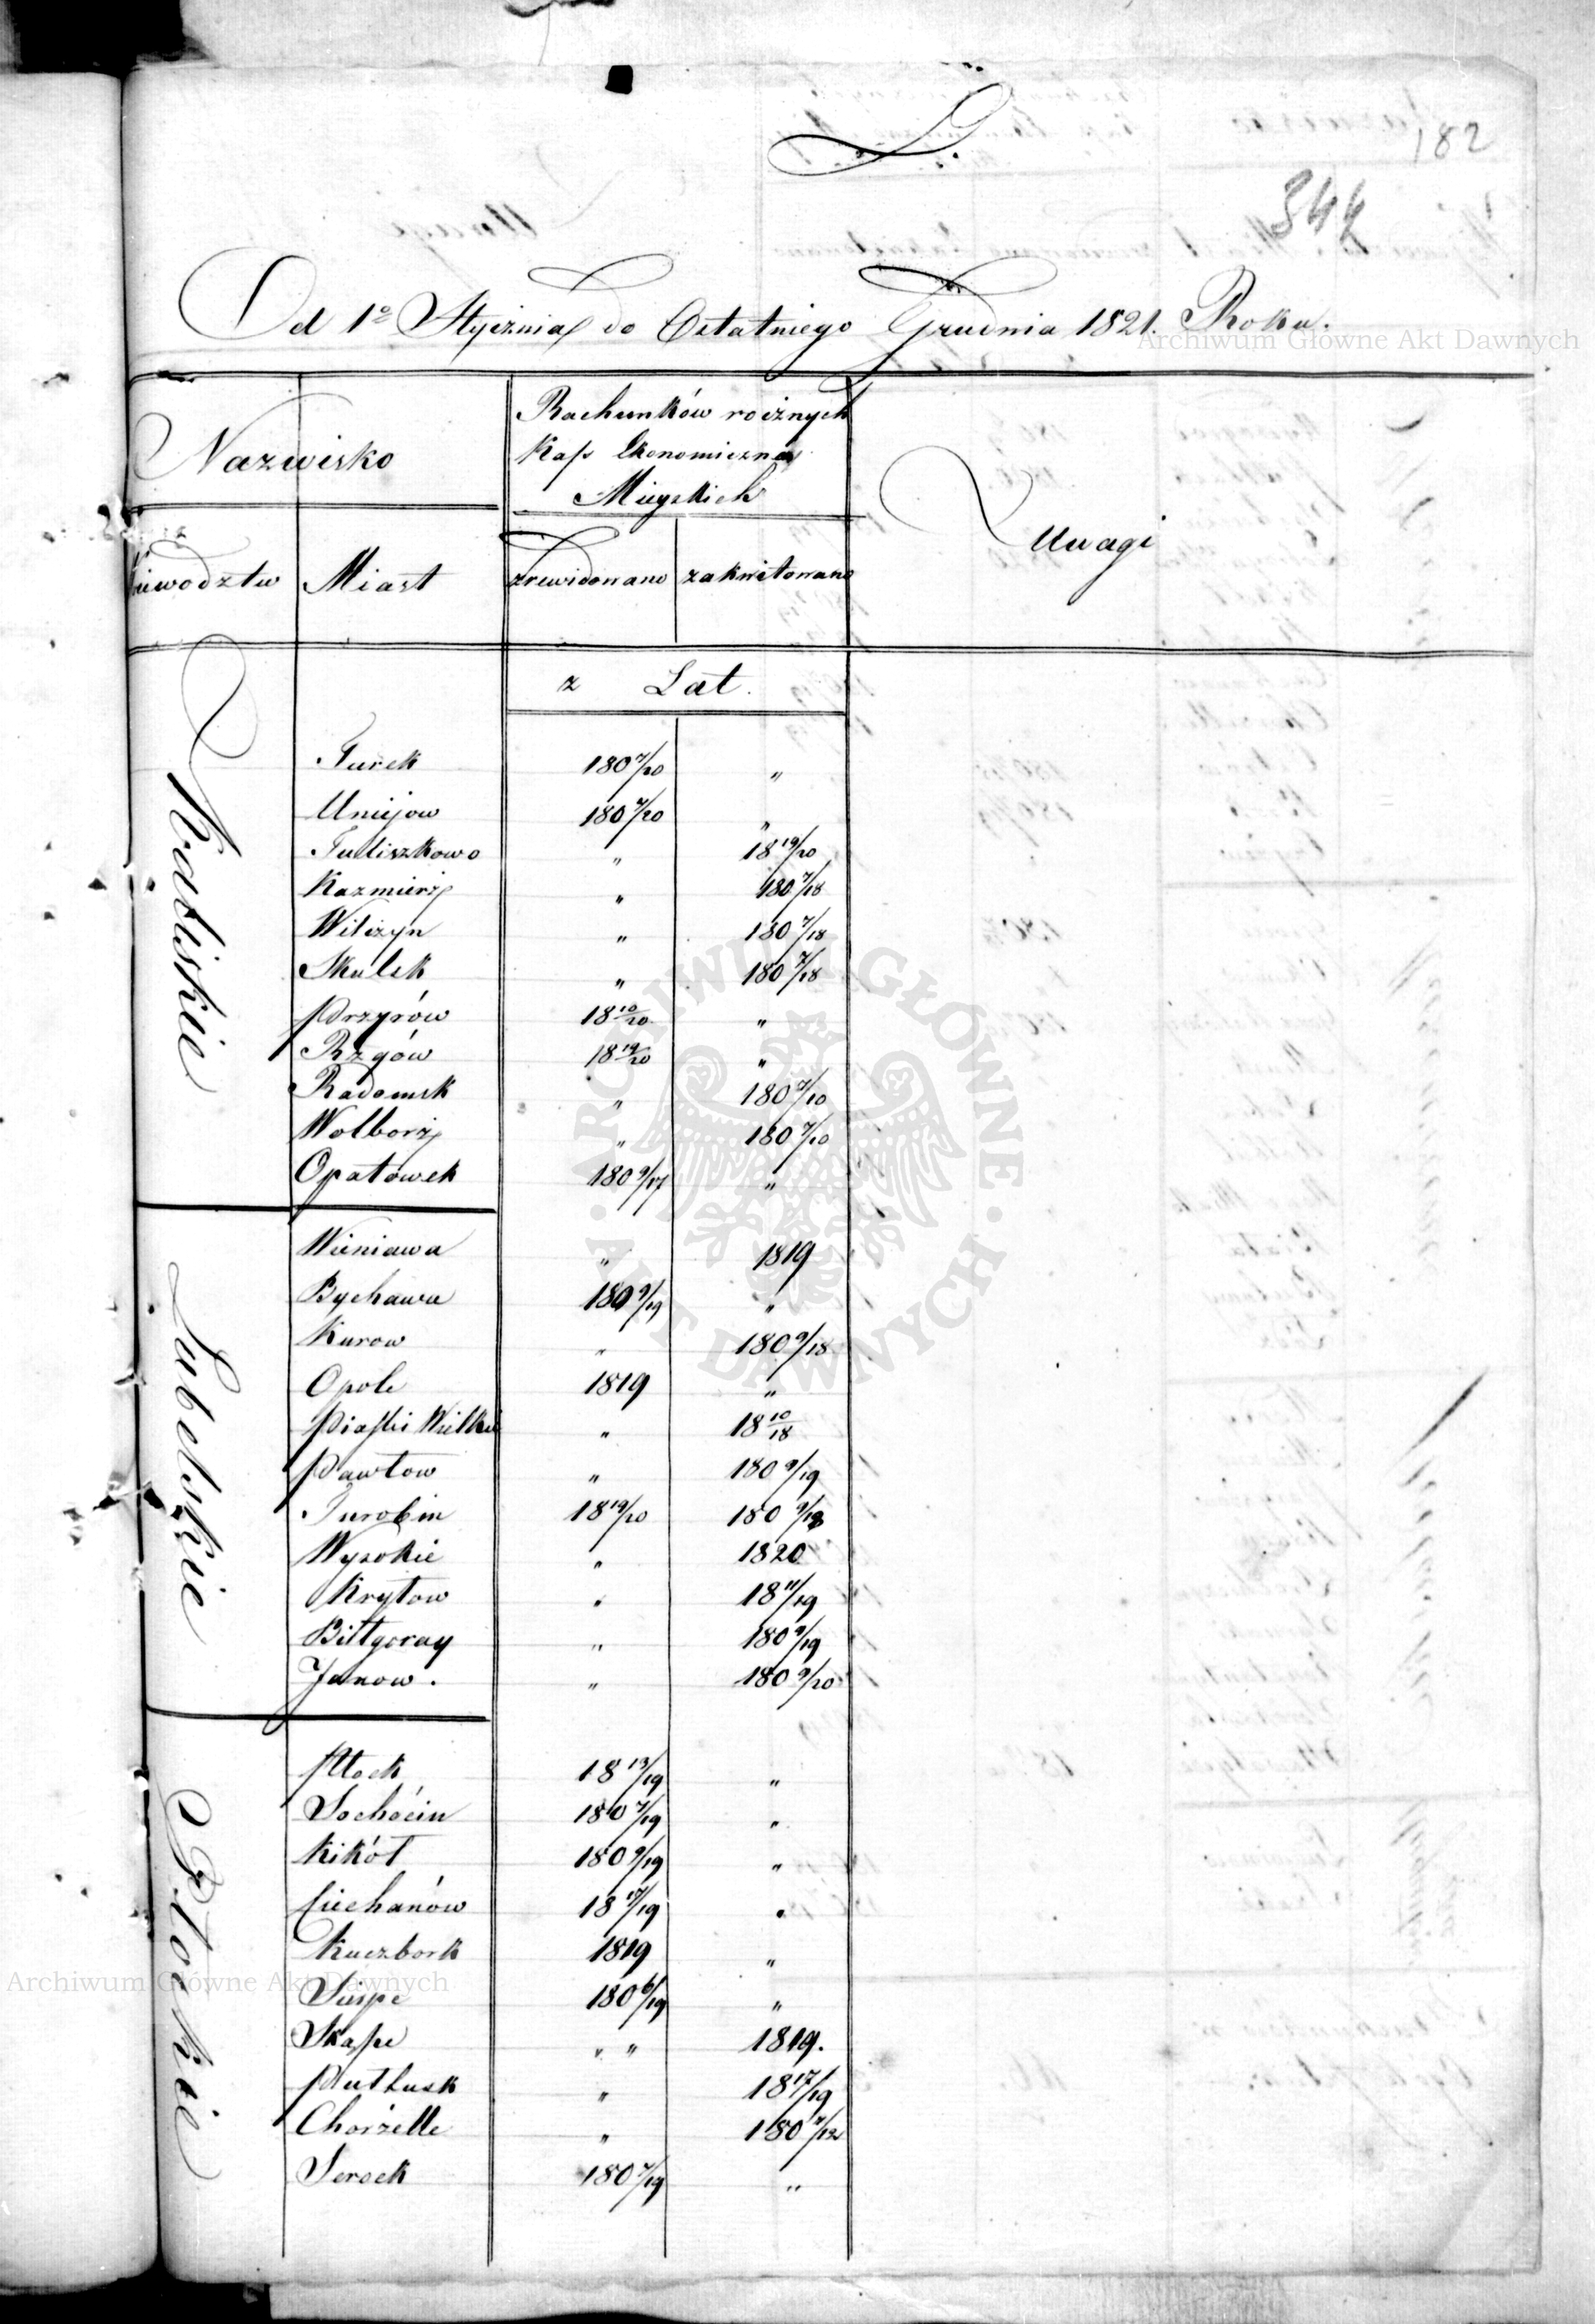 D.
182
344
Od 1º Stycznia do Ostatniego Grudnia 1821. Roku.
Nazwisko
Rachunków rocznych
Kass Ekonomiczno
Mieyskich
Uwagi
Miast
zrewidowano
zakwitowano
z Lat.
Kaliskie
Turek 180 7/20 „
Uniejow 180 7/20 „
Tuliszkowo „ 18 19/20
Kazmierz „ 180 7/18
Wilczyn „ 180 7/18
Skulsk „ 180 7/18
Przyrów 18 10/20 „
Rzgów 18 19/20 „
Radomsk „ 180 7/20
Wolborz „ 180 7/20
Opatowek 180 9/17 „
Lubelskie
Wieniawa „ 1819
Bychawa 180 9/19 „
Kurow „ 180 9/18
Opole 1819 „
Piaski Wielkie „ 18 10/18
Pawłow „ 180 9/19
Turobin 18 19/20 180 9/18
Wysokie „ 1820
Kryłow „ 18 11/19
Biłłgoray „ 180 9/19
Janow. „ 180 9/20
Płockie
Płock 18 13/19 „
Sochocin 180 7/19 „
Kikół 180 9/19 „
Ciechanów 18 17/19 „
Kuczbork 1819 „
Sierpc 180 6/19 „
Skąpe „ „ 1819.
Pułtusk „ 18 17/19
Chorzelle „
Serock 180 7/19 „
Archiwum Główne Akt Dawnych
Archiwum Główne Akt Dawnych
ARCHIWUM GŁÓWNE AKT DAWNYCH